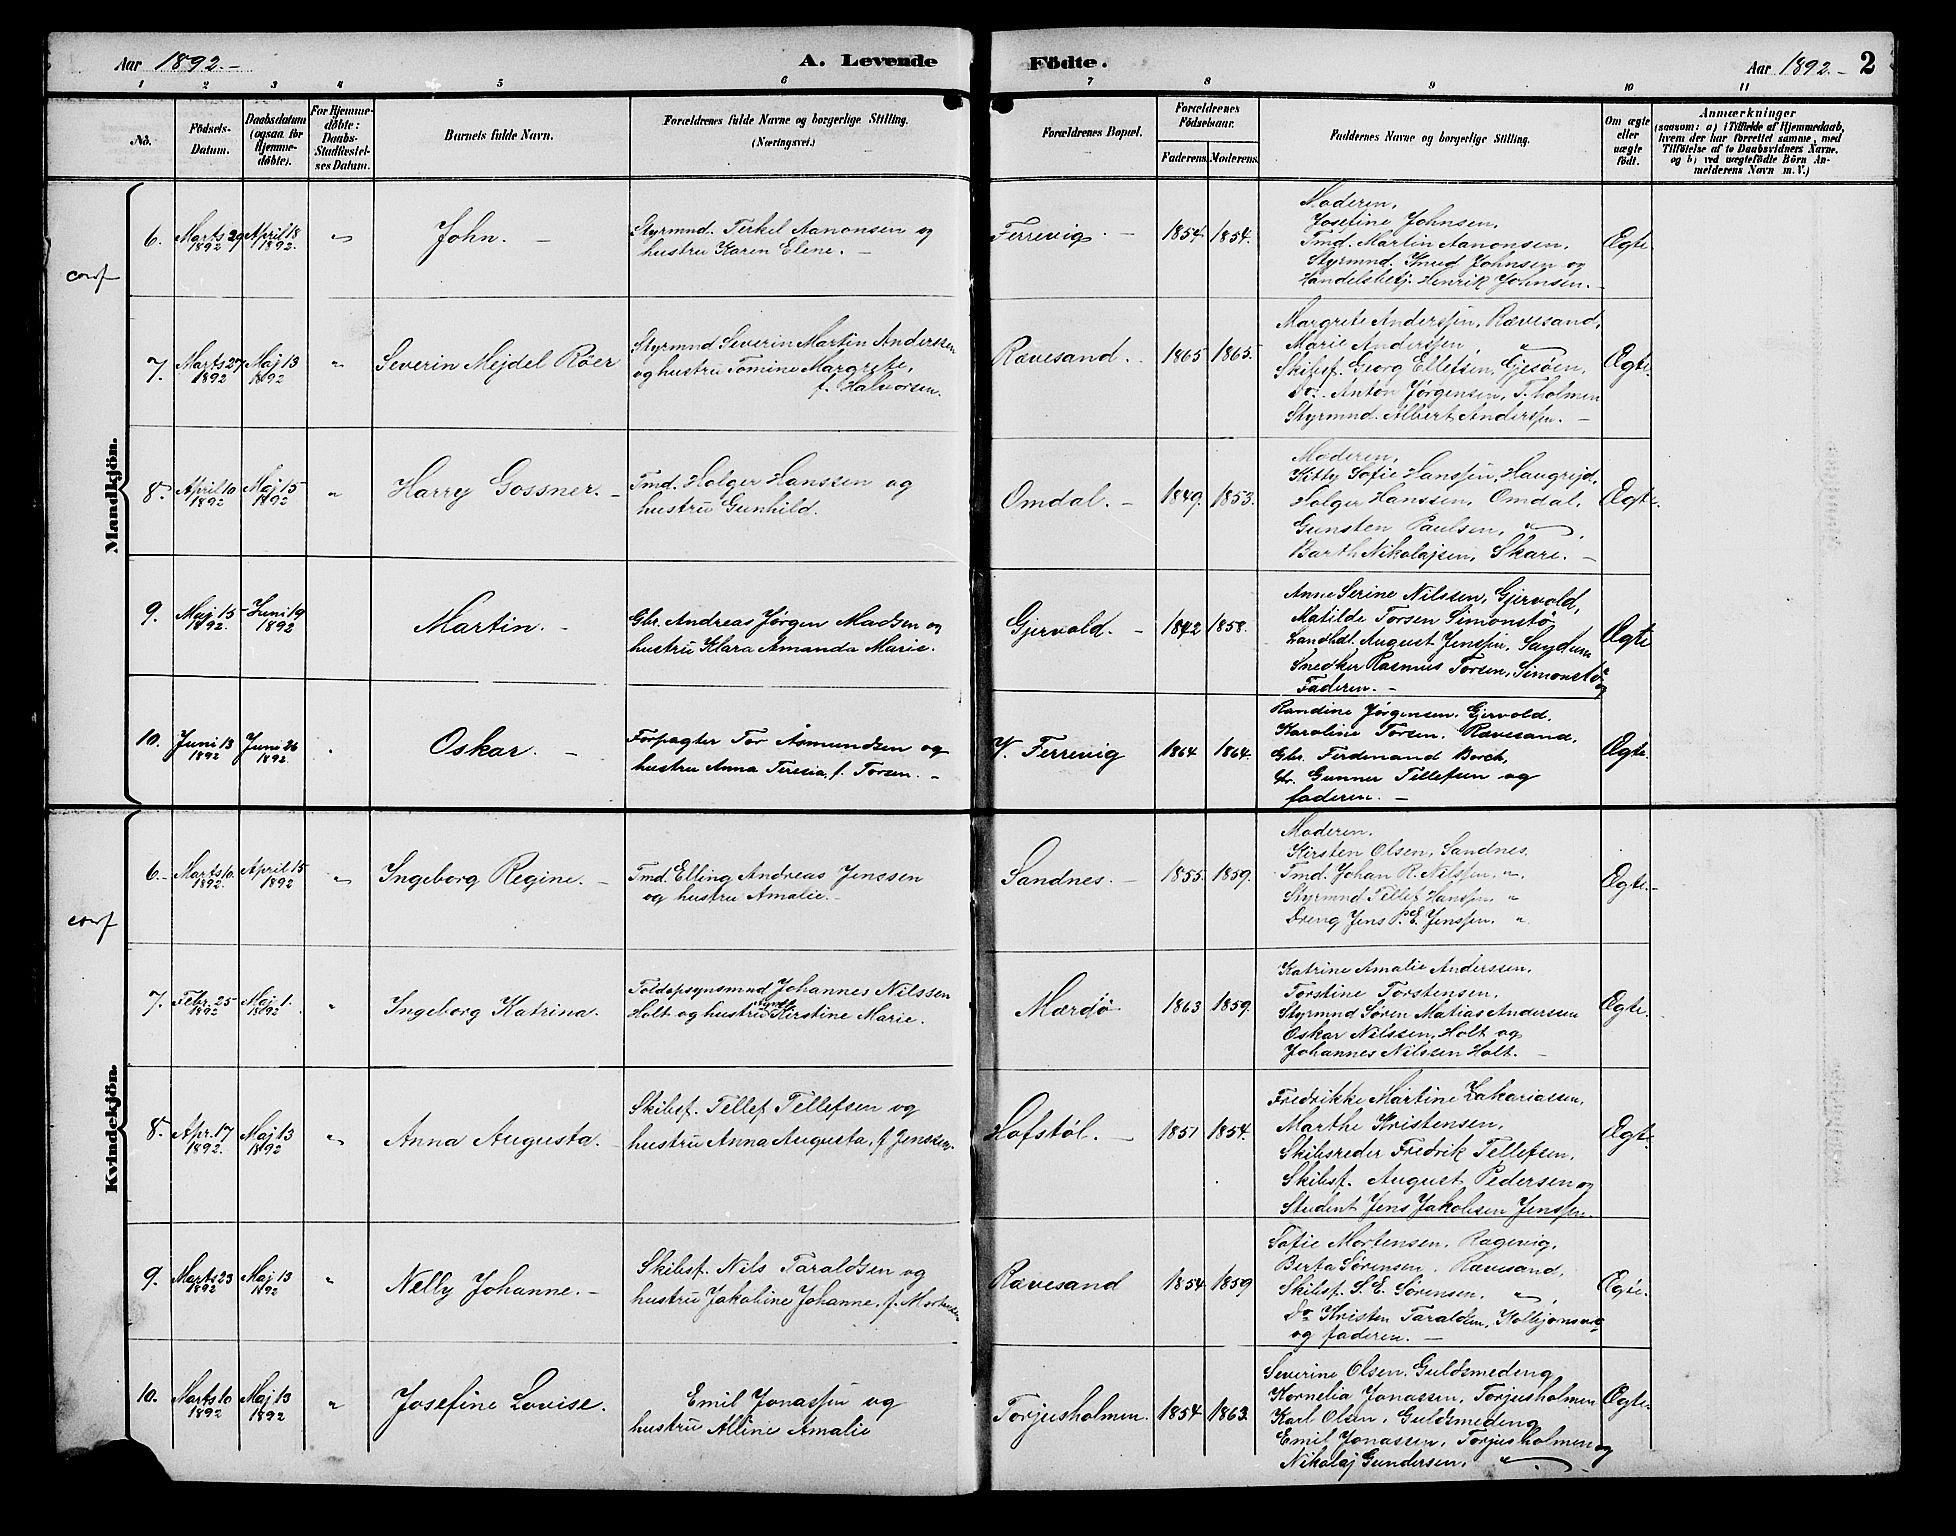 Aar 1892.-
A. Levende
Födte.
Aar 1892.- 2
1 2 3 4 5 6 7 8 9 10 11
No.
Födsels-
Datum.
Daabsdatum
(ogsaa for
Hjemme-
döbte).
For Hjemme-
döbte:
Daabs-
Stadfæstel-
ses Datum.
Barnets fulde Navn.
Forældrenes fulde Navne og borgerlige Stilling.
(Næringsvei.)
Forældrenes Bopæl.
Forældrenes
Födselsaar.
Faderens. Moderens.
Faddernes Navne og borgerlige Stilling.
Om ægte
eller
uægte
födt.
Anmærkninger
(saasom: a) i Tilfælde af Hjemmedaab,
hvem der har forrettet samme, med
Tilföielse af to Daabsvidners Navne,
og b) ved uægtefödte Börn An-
melderens Navn m. V.)
Mandkjön.
conf
6. Marts 29 1892 April 18 1892. " John. –
Styrmnd. Terkel Aanonsen og
hustru Karen Elene. –
Ferrevig. – 1854. 1854.
Moderen,
Josefine Johnsen,
Tmd. Martin Aanonsen,
Styrmnd. Knud Johnsen og
Handelsbetj. Henrik Johnsen. –
Ægte.
7. Marts 27 1892 Maj 13 1892 " Severin Mejdel Röer
Styrmnd Severin Martin Anderssen
og hustru Tomine Margrete,
f. Halvorsen.
Rævesand. 1865 1865.
Margrete Anderssen, Rævesand,
Marie Anderssen, "
Skibsf. Georg Ellefsen, Gjesöen,
Do. Anton Jörgensen, T.holmen
Styrmnd. Albert Anderssen. –
Ægte.
8. April 10 1892 Maj 15 1892 " Harry Gossner. –
Tmd. Holger Hanssen og
hustru Gunhild.
Omdal. – 1849. 1853.
Moderen,
Kitty Sofie Hanssen, Haugrejd,
Holger Hanssen, Omdal,
Gunsten Paulsen, ",
Barth Nikolajsen, Skare. –
Ægte.
9. Maj 15 1892. Juni 19 1892 Martin. –
Gbr. Andreas Jörgen Madsen og
hustru Klara Amanda Marie.
Gjervold. – 1842 1858.
Anne Serine Nilssen, Gjervold,
Matilde Torsen Simonstö
Landhdl. August Jenssen, Sandum
Snedker Rasmus Torsen, Simonstö og
Faderen. –
Ægte
10. Juni 13 1892 Juni 26 1892. Oskar. –
Forpagter Tor Åsmundsen og
hustru Anna Teresia, f. Torsen. –
V. Ferrevig 1864 1864.
Randine Jörgensen, Gjervold.
Karoline Torsen, Rævesand,
Gbr. Ferdinand Borch,
Gunner Tellefsen og
faderen. –
Ægte.
Kvindekjön.
conf
6. Marts 10. 1892. April 15 1892 " Ingeborg Regine. –
Tmd. Elling Andreas Jenssen
og hustru Amalie. –
Sandnes. – 1855. 1859.
Moderen.
Kirsten Olsen, Sandnes,
Tmd. Johan R. Nilssen, ".
Styrmnd Tellef Hanssen, "
Dreng Jens P. E. Jenssen, ".
Ægte.
7. Febr. 25 1892 Maj 1. 1892 " Ingeborg Katrina.
Toldopsynsmnd Johannes Nilssen
Holt og hustru Kirstine Marie.
Mærdö 1863 1859.
Katrine Amalie Anderssen,
Torstine Torstensen,
Styrmnd Sören Matias Anderssen
Oskar Nilssen Holt og
Johannes Nilssen Holt. –
Ægte.
8. Apr. 17 1892. Maj 13 1892 " Anna Augusta. –
Skibsf. Tellef Tellefsen og
hustru Anna Augusta, f. Jenssen.
Hofstöl. – 1851 1854.
Fredrikke Martine Zakariassen,
Marthe Kristensen,
Skibsreder Fredrik Tellefsen,
Skibsf. August Pedersen og
Student Jens Jakobsen Jenssen.
Ægte.
9. Marts 23 1892 Maj 13 1892 " Nelly Johanne. –
Skibsf. Nils Taraldsen og
hustru Jakobine Johanne, f. Mortensen
Rævesand 1854 1859
Sofie Mortensen, Ragevig,
Berta Sörensen, Rævesand,
Skibsf. S. E. Sörensen, ",
Do Kristen Taraldsen,
og faderen. –
Ægte.
10. Marts 10 1892 Maj 13 1892 " Josefine Lovise.
Emil Jonassen og
hustru Alline Amalie
Torjusholmen. 1854 1863.
Severine Olsen, Guldsmedeng
Kornelia Jonassen, Torjusholmen
Karl Olsen, Guldsmedeng
Emil Jonassen, Torjusholmen og
Nikolaj Gundersen, "
Ægte.